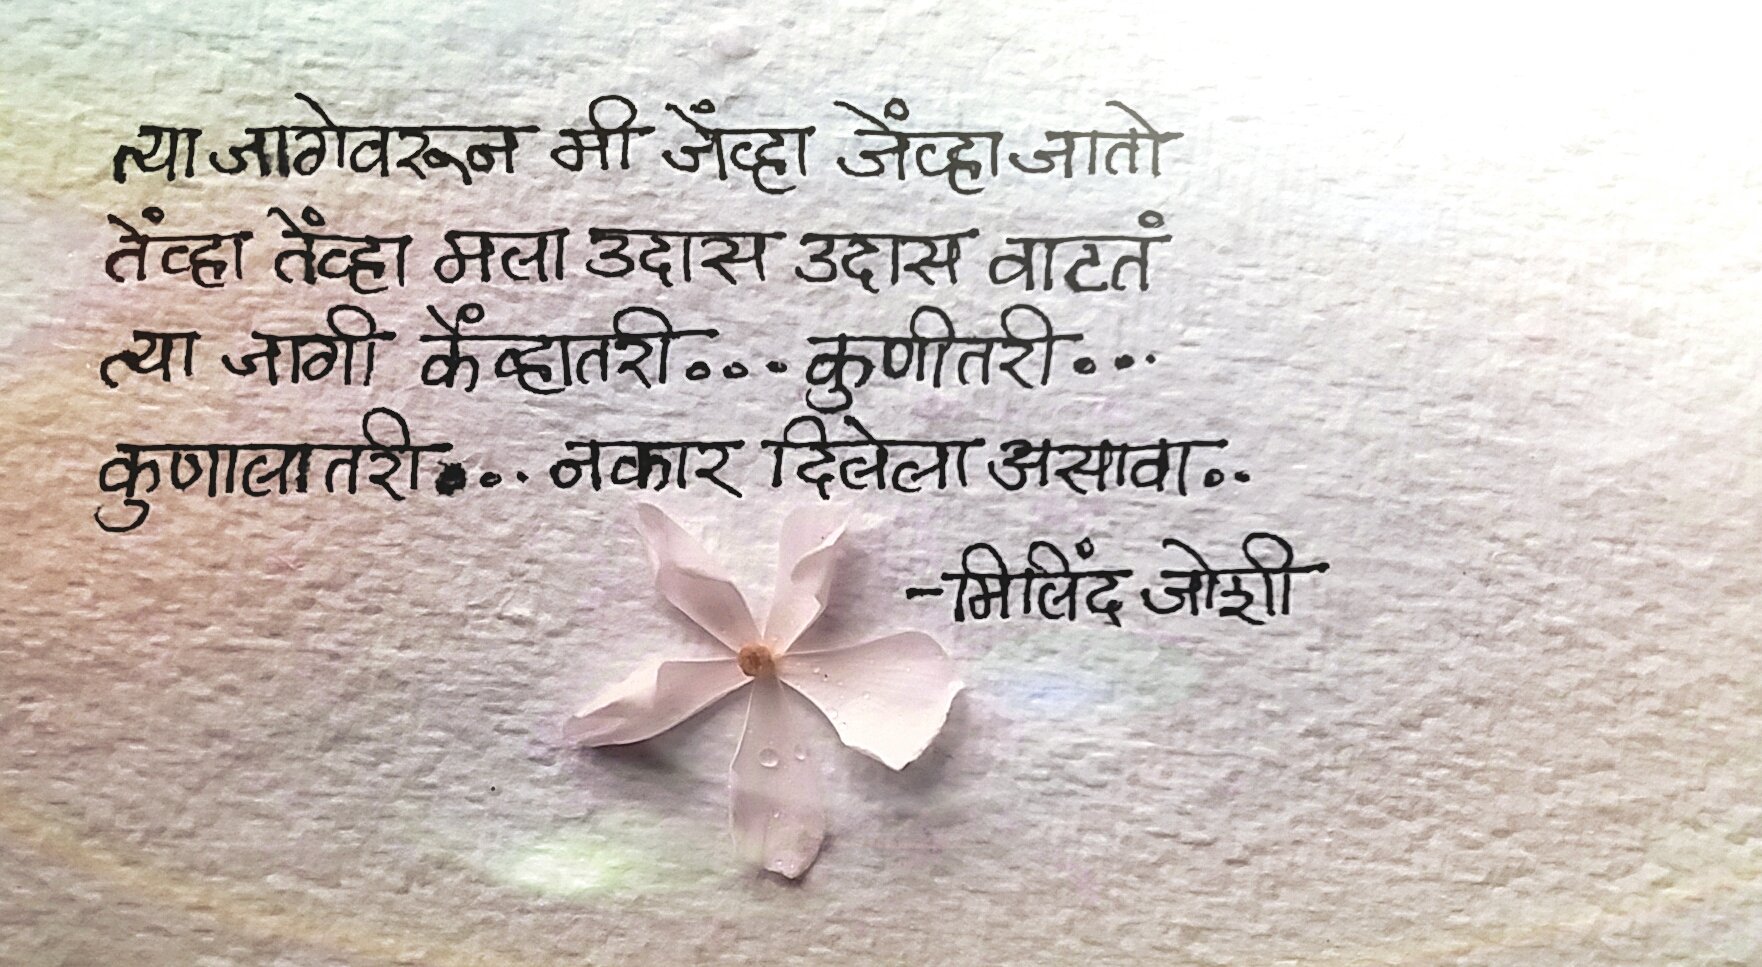 त्या जागेवरून मी जेंव्हा जेंव्हा जातो
तेंव्हा तेंव्हा मला उदास उदास वाटतं
त्या जागी केंव्हातरी.... कुणीतरी...
कुणालातरी.... नकार दिलेला असावा..
-मिलिंद जोशी